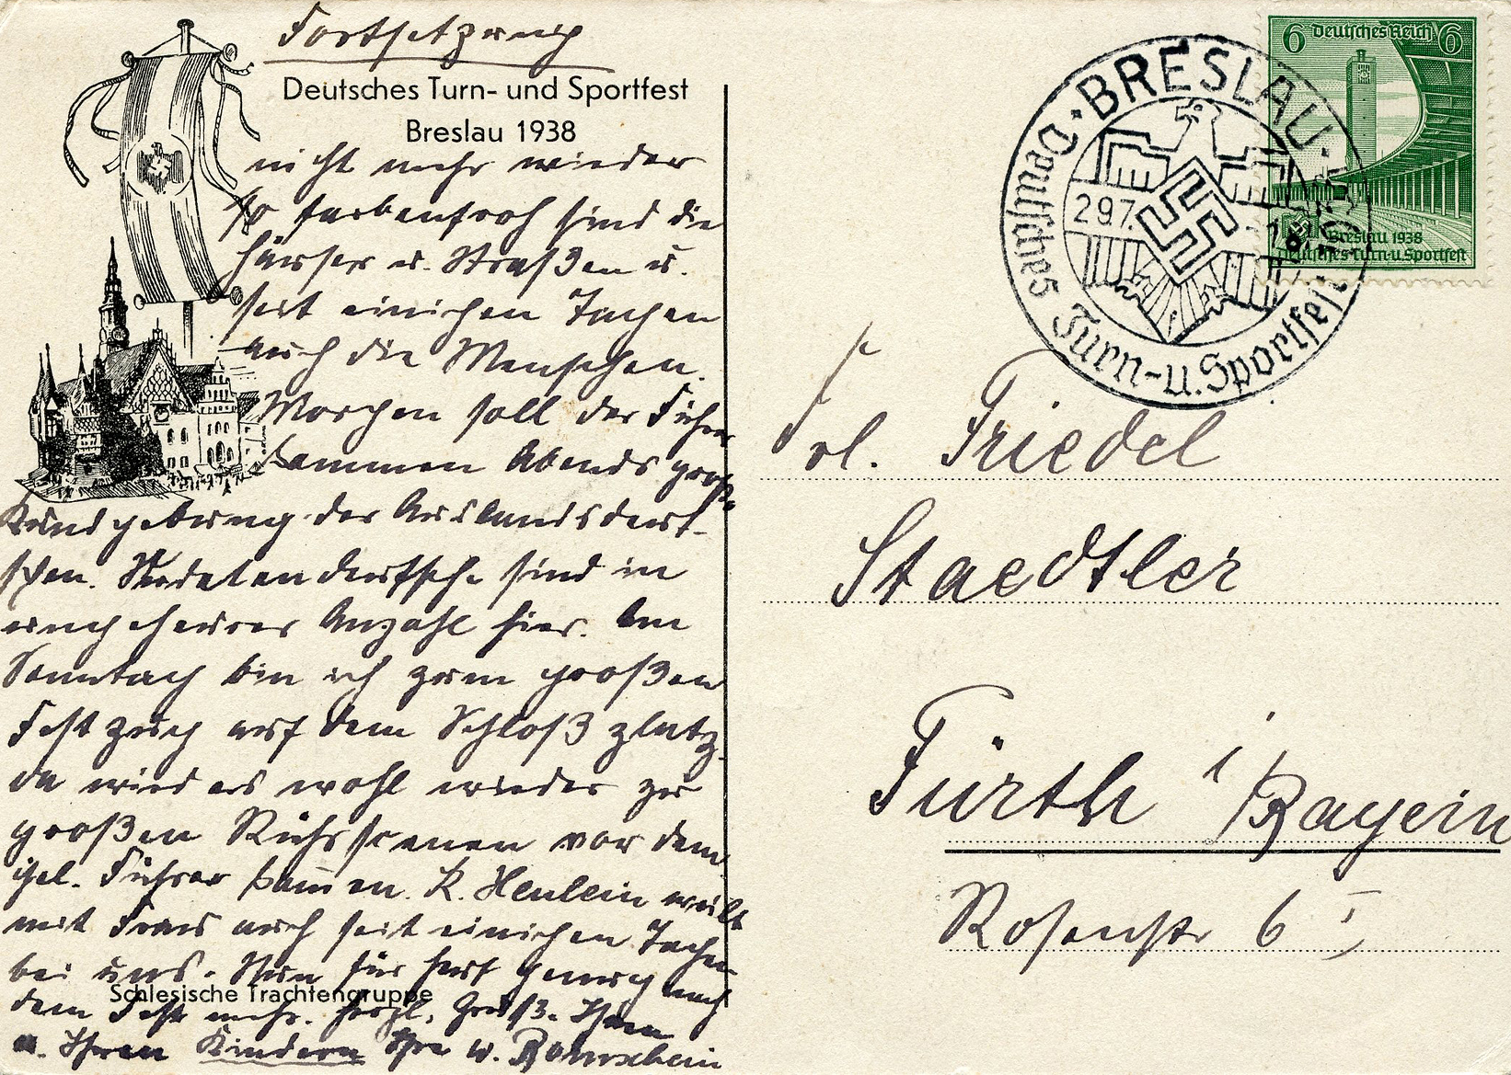 Fortsetzung
Deutsches Turn- und Sportfest
Breslau 1938
nicht mehr wieder
so farbenfroh sind die
Häuser u. Straßen u.
seit einichen Tachen
auch die Menschen.
Morchen soll der Führer
kommen Abends große
Kundgebung der Auslandsdeut-
schen. Sudetendeutsche sind in
ungeheurer Anzahl hier. Am
Sonntag bin ich zum großen
Festzug auf dem Schloßplatz
da wird es wohl wieder zu
großen Szenen vor dem
gel. Führer kommen. K. Henlein weilt
mit Frau auch seit einichen Tachen
bei uns. Nun für heut genug nach
Schlesische Trachtengruppe
dem Fest mehr. Herzl. Grüße Ihnen
u. Ihren Kindern Ihre
BRESLAU
Deutsches Turn-u. Sportfest
29.7.
6 Deutsches Reich 6
Breslau 1938
Deutsches Turn-u. Sportfest
Frl. Friedel
Staedtler
Fürth i/Bayern
Rosenstr 6 I